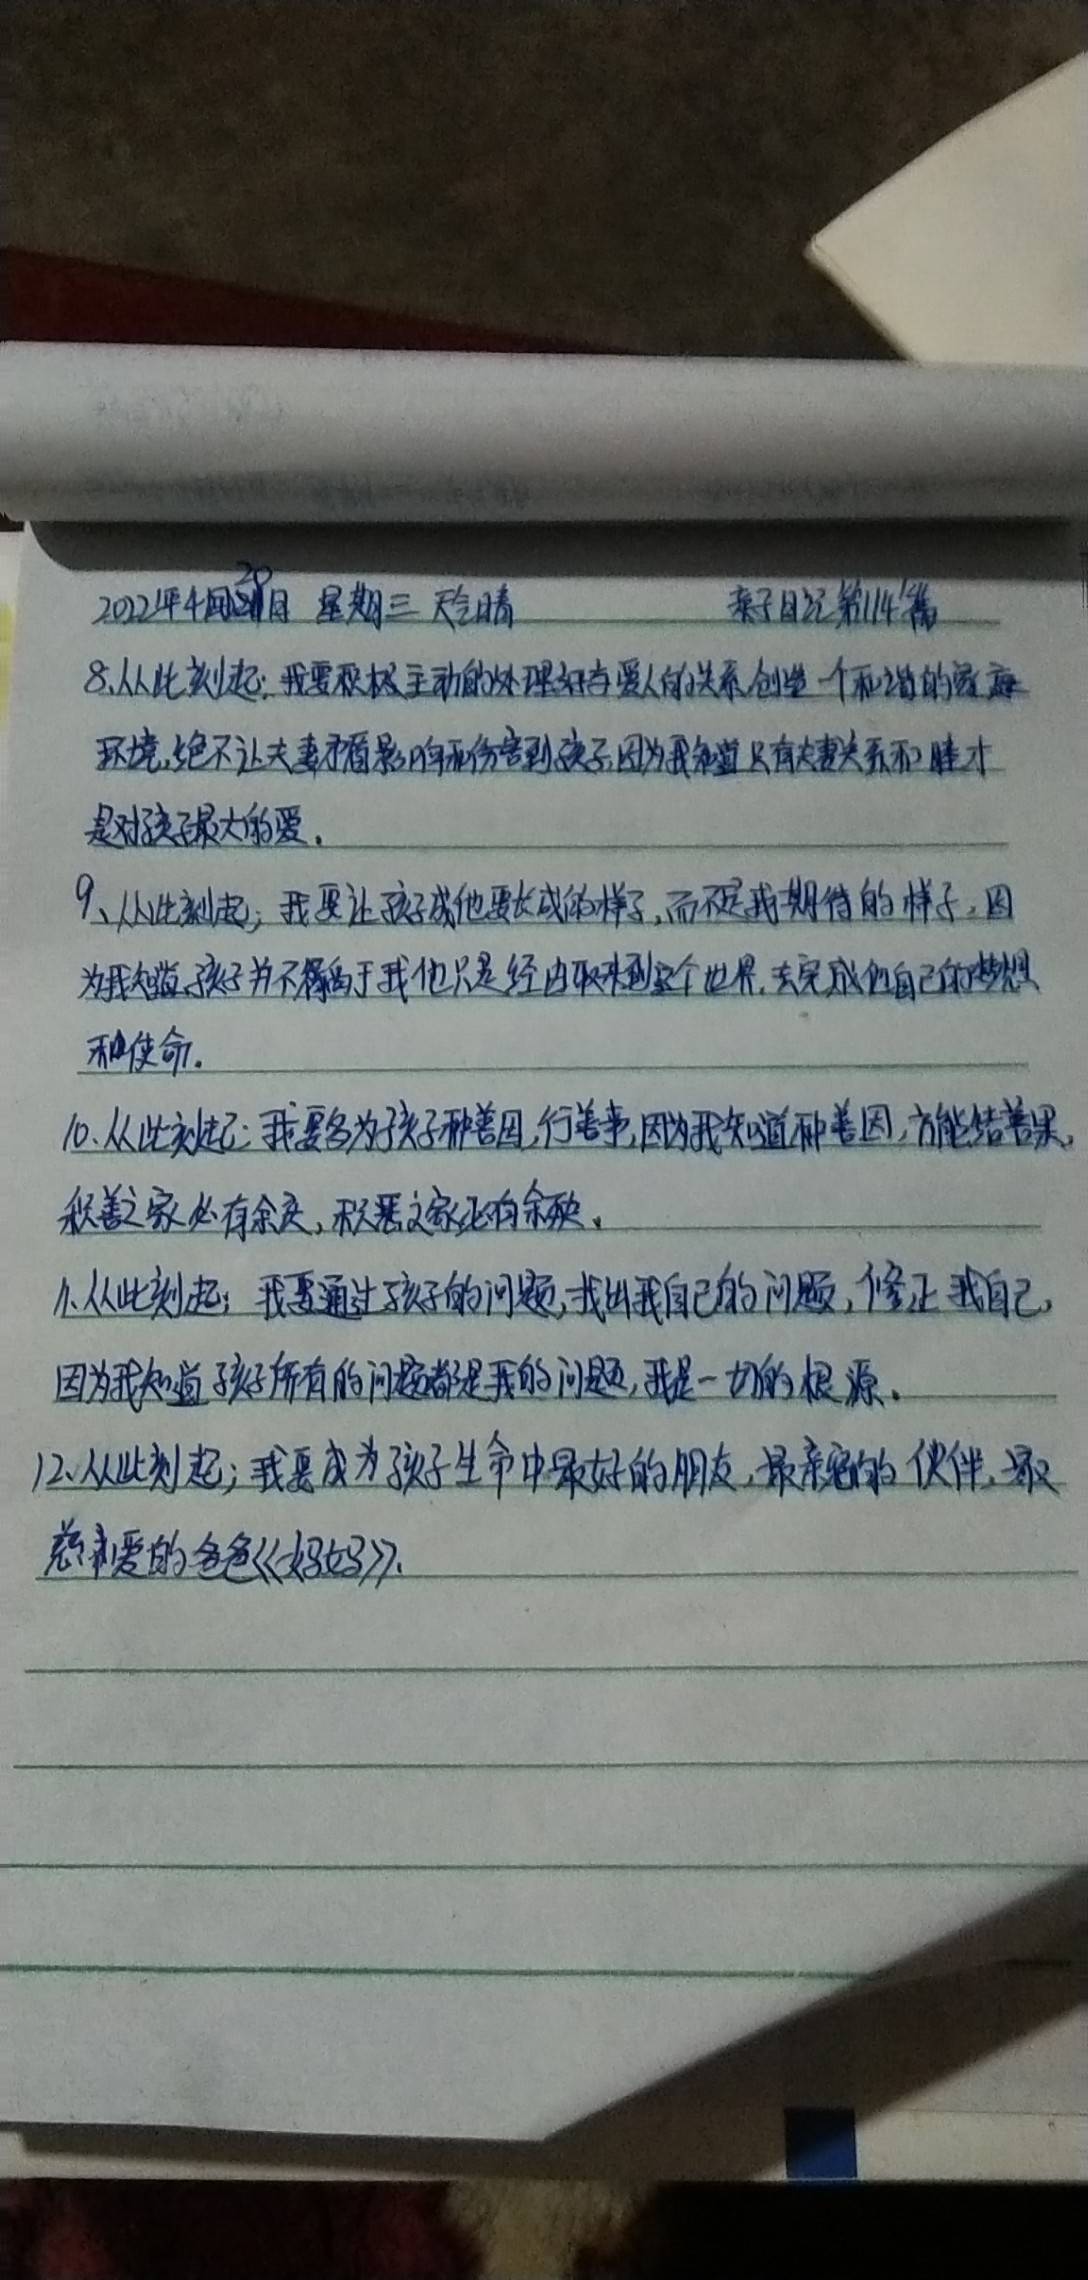 2022年4月20日 星期三 天气晴 亲子日记第114篇
8、从此刻起：我要积极主动的处理好与爱人的关系，创造一个和谐的家庭
环境，绝不让夫妻矛盾影响和伤害到孩子，因为我知道只有夫妻关系和睦才
是对孩子最大的爱。
9、从此刻起；我要让孩子成他要长成的样子，而不是我期待的样子，因
为我知道孩子并不属于我他只是经由我来到这个世界，去完成他自己的梦想
和使命。
10、从此刻起：我要多为孩子种善因，行善事，因为我知道种善因，方能结善果，
积善之家必有余庆，积恶之家必有余殃。
11、从此刻起；我要通过孩子的问题，找出我自己的问题，修正我自己，
因为我知道孩子所有的问题都是我的问题，我是一切的根源。
12、从此刻起；我要成为孩子生命中最好的朋友，最亲密的伙伴，最
慈爱的爸爸《妈妈》。